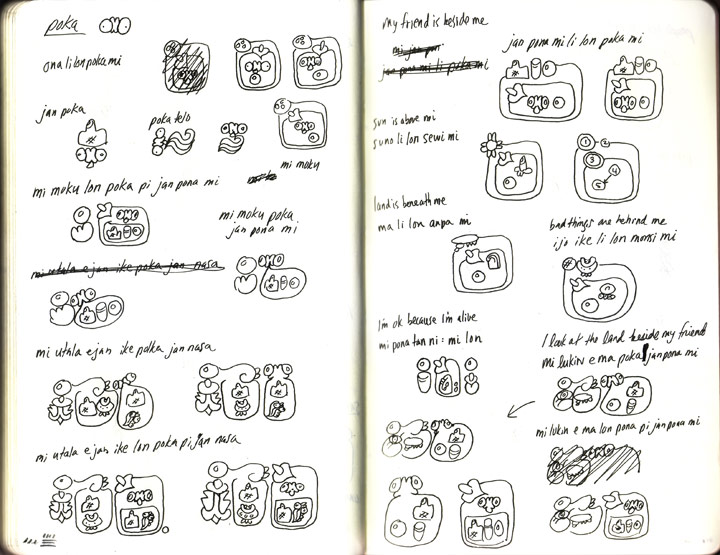 poka
ona li lon poka mi
jan poka
poka telo
mi moku
mi moku lon poka pi jan pona mi
mi moku poka
jan pona mi
mi utala e jan ike poka jan nasa
mi utala e jan ike poka jan nasa
mi utala e jan ike lon poka pi jan nasa
my friend is beside me
mi jan pona
jan pona mi li poka mi
jan pona mi li lon poka mi
sun is above mi
suno li lon sewi mi
1 2
3
4
5
land is beneath me
ma li lon anpa mi
bad things are behind me
ijo ike li lon monsi mi
I'm ok because I'm alive
mi pona tan ni: mi lon
I look at the land beside my friend
mi lukin e ma poka jan pona mi
mi lukin e ma lon pona pi jan pona mi